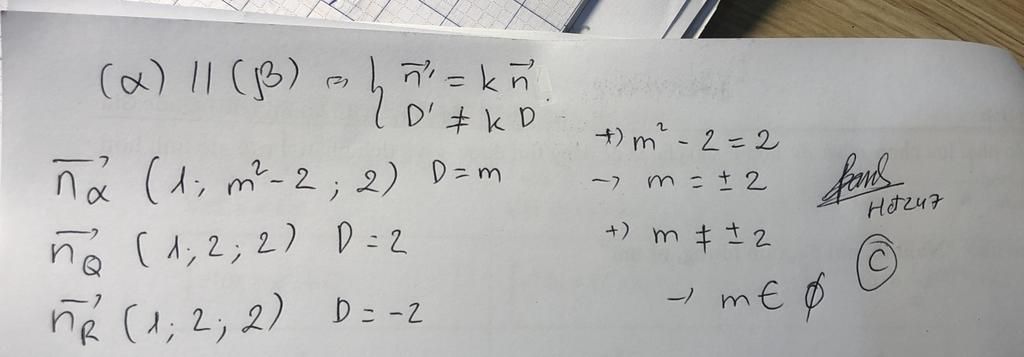 (α) // (β) ⇔ { n⃗' = k n⃗
D' ≠ k D
n⃗α (1; m² - 2; 2) D = m
n⃗Q (1; 2; 2) D = 2
n⃗R (1; 2; 2) D = -2
+) m² - 2 = 2
→ m = ± 2
+) m ≠ ± 2
→ m ∈ ∅
Hdt247
C